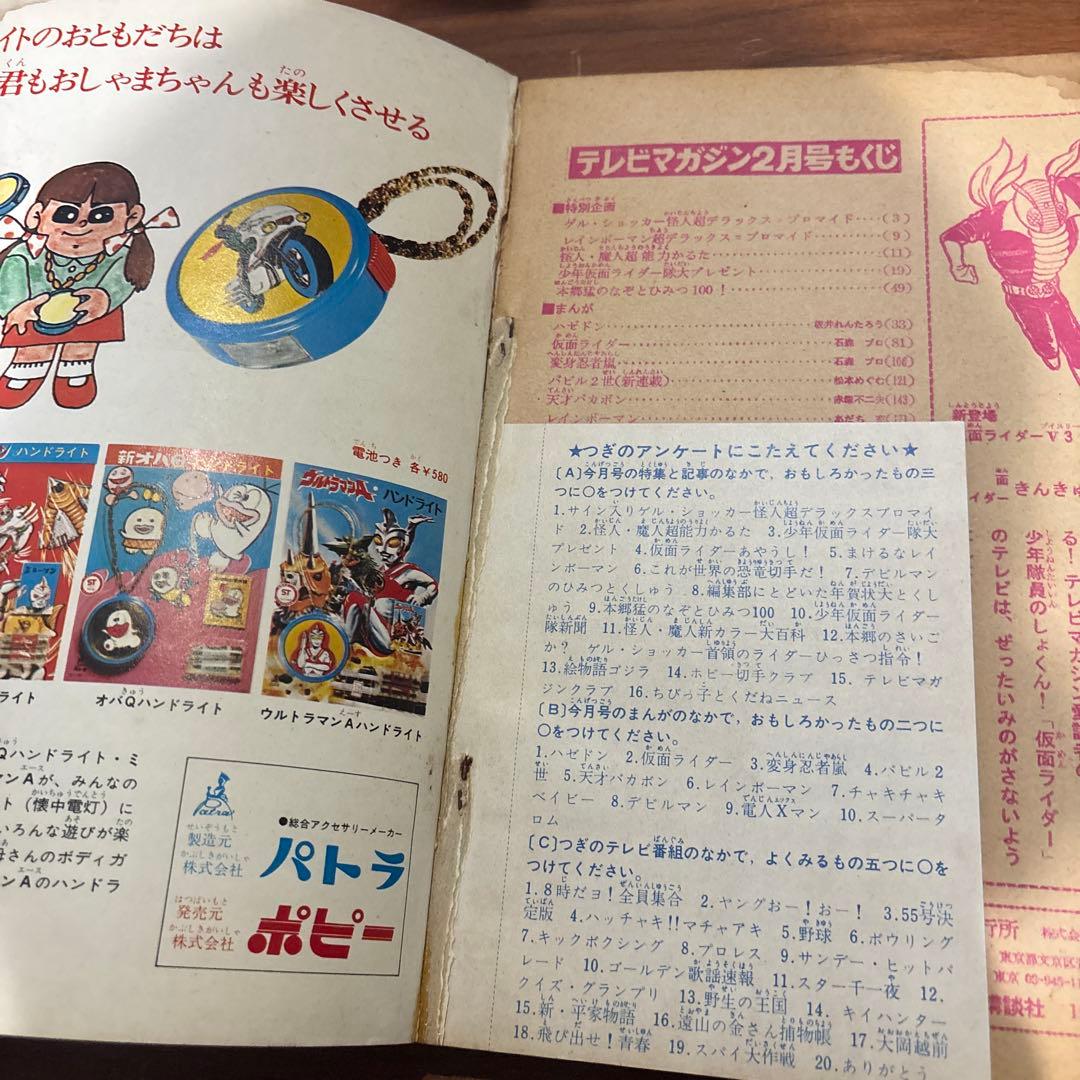 イトのおともだちは
君もおしゃまちゃんも楽しくさせる
ハンドライト
新オバQハンドライト
電池つき 各¥580
ウルトラマンA・ハンドライト
ST
ライト
オバQハンドライト
ウルトラマンAハンドライト
Qハンドライト・ミ
マンAが、みんなの
ト(懐中電灯)に
いろんな遊びが楽
母さんのボディガ
マンAのハンドラ
Patra
製造元
株式会社
●総合アクセサリーメーカー
パトラ
発売元
株式会社
ポピー
テレビマガジン2月号もくじ
■特別企画
ゲル・ショッカー怪人超デラックス=ブロマイド····(3)
レインボーマン超デラックス=ブロマイド····(9)
怪人・魔人超能力かるた····(11)
少年仮面ライダー隊大プレゼント····(19)
本郷猛のなぞとひみつ100!····(49)
■まんが
ハゼドン····坂井れんたろう(33)
仮面ライダー····石森プロ(81)
変身忍者嵐····石森プロ(106)
バビル2世(新連載)····松本めぐむ(121)
天才バカボン····赤塚不二夫(143)
レインボーマン
新登場
仮面ライダーV3
ライダー きんきゅ
る! テレビマガジン愛読者の
少年隊員のしょくん!「仮面ライダー」
のテレビは、ぜったいみのがさないよう
行所 株式会
東京都文京区
東京 03-945-1
講談社
★つぎのアンケートにこたえてください★
〔A〕今月号の特集と記事のなかで、おもしろかったもの三
つに○をつけてください。
1.サイン入りゲル・ショッカー怪人超デラックスブロマイ
ド 2.怪人・魔人超能力かるた 3.少年仮面ライダー隊大
プレゼント 4.仮面ライダーあやうし! 5.まけるなレイ
ンボーマン 6.これが世界の恐竜切手だ! 7.デビルマン
のひみつとくしゅう 8.編集部にとどいた年賀状大とくし
ゅう 9.本郷猛のなぞとひみつ100 10.少年仮面ライダー
隊新聞 11.怪人・魔人新カラー大百科 12.本郷のさいご
か? ゲル・ショッカー首領のライダーひっさつ指令!
13.絵物語ゴジラ 14.ホビー切手クラブ 15. テレビマガ
ジンクラブ 16.ちびっ子とくだねニュース
〔B〕今月号のまんがのなかで、おもしろかったもの二つに
○をつけてください。
1.ハゼドン 2.仮面ライダー 3.変身忍者嵐 4.バビル2
世 5.天才バカボン 6.レインボーマン 7.チャキチャキ
ベイビー 8.デビルマン 9.電人Xマン 10.スーパータ
ロム
〔C〕つぎのテレビ番組のなかで、よくみるもの五つに○を
つけてください。
1.8時だヨ!全員集合 2.ヤングおー!おー! 3.55号決
定版 4.ハッチャキ!!マチャアキ 5.野球 6.ボウリング
7.キックボクシング 8.プロレス 9.サンデー・ヒットパ
レード 10.ゴールデン歌謡速報 11.スター千一夜 12.
クイズ・グランプリ 13.野生の王国 14. キイハンター
15.新・平家物語 16.遠山の金さん捕物帳 17.大岡越前
18.飛び出せ!青春 19.スパイ大作戦 20.ありがとう